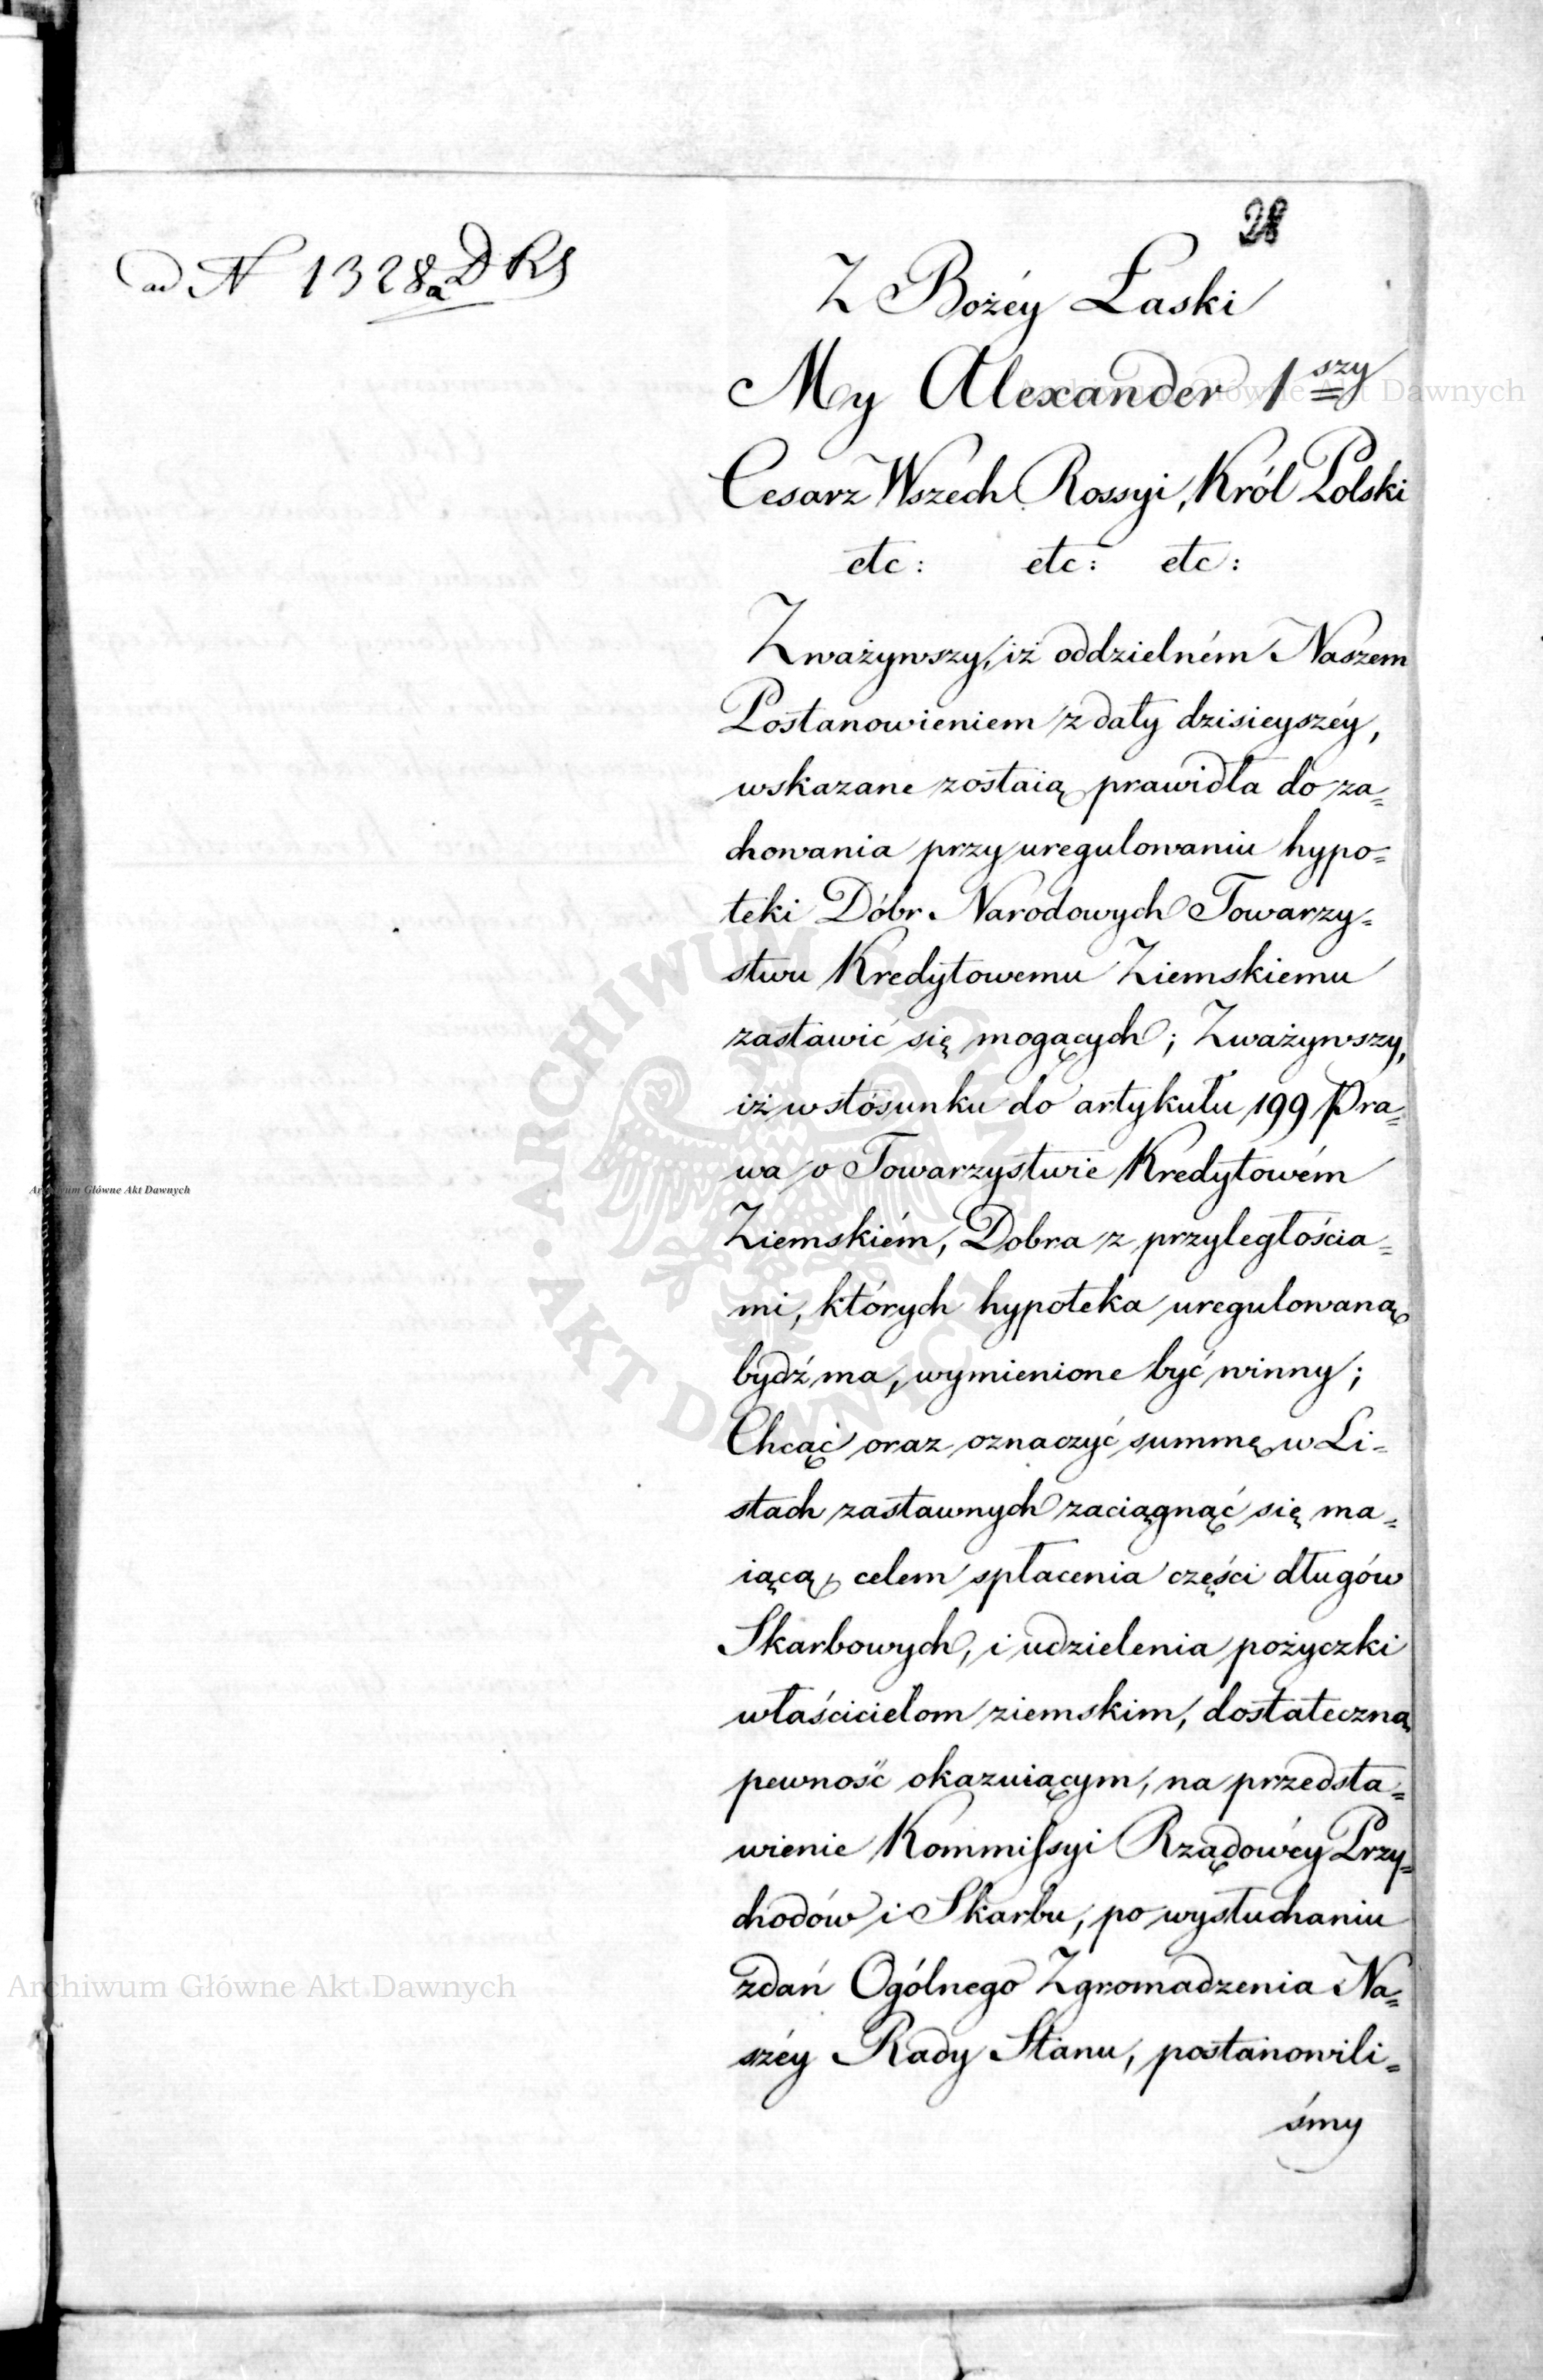 28
ad N 1328a D RS
Z Bożéy Łaski
My Alexander 1szy
Cesarz Wszech Rossyi, Król Polski
etc: etc: etc:
Zważywszy, iż oddzielném Naszem
Postanowieniem z daty dzisieyszéy,
wskazane zostaią prawidła do za=
chowania przy uregulowaniu hypo=
teki Dóbr Narodowych Towarzy=
stwu Kredytowemu Ziemskiemu
zastawić się mogących; Zważywszy,
iż w stósunku do artykułu 199 Pra=
wa o Towarzystwie Kredytowém
Ziemskiém, Dobra z przyległościa=
mi, których hypoteka uregulowaną
bydź ma, wymienione być winny;
Chcąć oraz oznaczyć summę w Li=
stach zastawnych zaciągnąć się ma=
iącą, celem spłacenia części długów
Skarbowych, i udzielenia pożyczki
właścicielom ziemskim, dostateczną
pewność okazuiącym, na przedsta=
wienie Kommissyi Rządowéy Przy=
chodów i Skarbu, po wysłuchaniu
zdań Ogólnego Zgromadzenia Na=
széy Rady Stanu, postanowili=
śmy
Archiwum Główne Akt Dawnych
Archiwum Główne Akt Dawnych
Archiwum Główne Akt Dawnych
ARCHIWUM GŁÓWNE • AKT DAWNYCH •